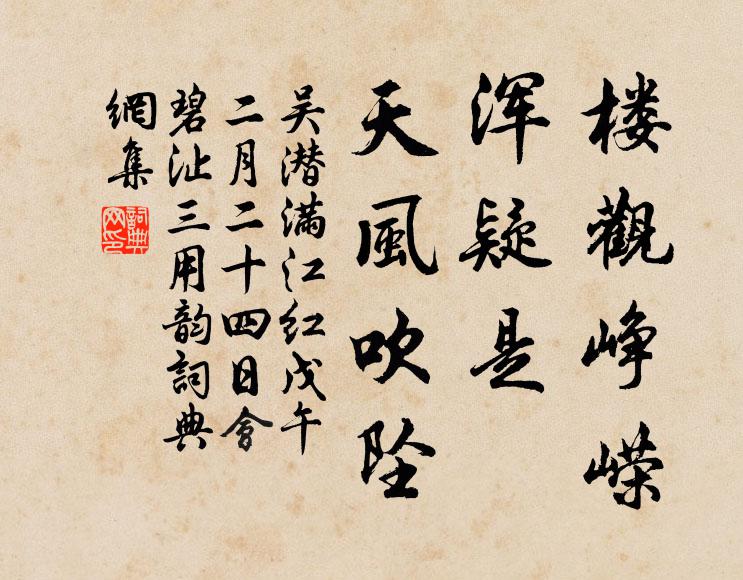 楼觀峥嵘
浑疑是
天風吹坠
吴潜满江红戊午
二月二十四日會
碧沚三用韵詞典
網集
詞典
网印